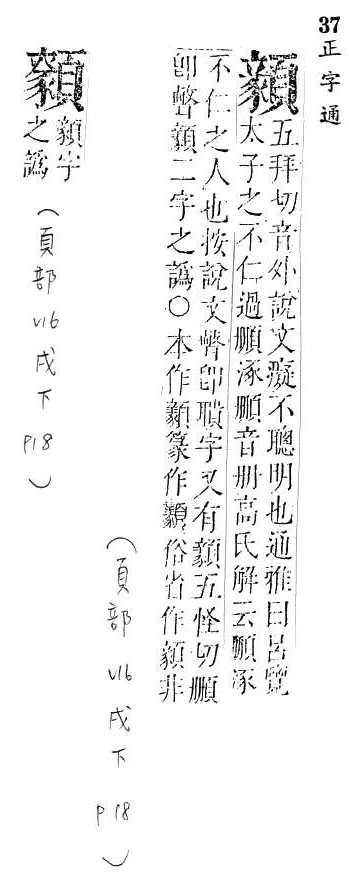 37 正字通
顡 五拜切音外說文癡不聰明也通雅曰呂覽
太子之不仁過涿音册高氏解云涿
不仁之人也按說文卽聵字又有顡五怪切
卽顡二字之譌○本作顡篆作俗省作非
(頁部 v16 戌下 p18)
顡字
之譌
(頁部 v16 戌下 P18)